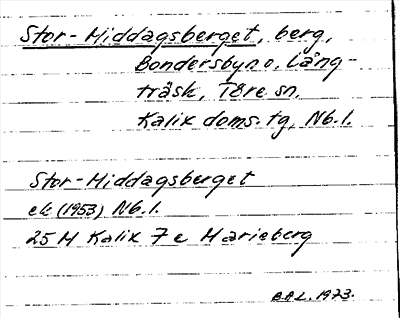 Stor-Middagsberget, berg,
Bondersbyn o. Lång-
träsk, Töre sn.
Kalix doms. tg, Nb. l.
Stor-Middagsberget
ek (1953) Nb. l.
25 M Kalix 7 e Marieberg
B.A.L. 1973.